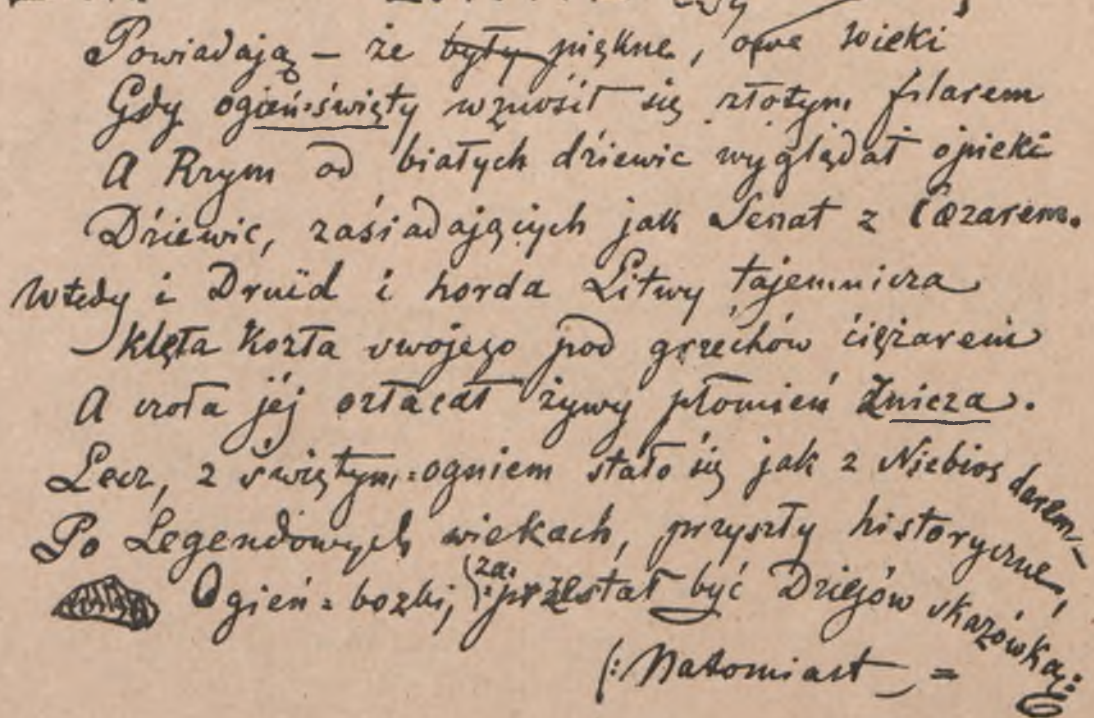 Powiadają – że były piękne, owe wieki
Gdy ogień=święty wznosił się złotym filarem
A Rzym od białych dziewic wyglądał opieki
Dziewic, zasiadających jak Senat z Cæzarem.
Wtedy i Druïd i horda Litwy tajemnicza
klęła Kozła swojego pod grzechów ciężarem
A czoła jéj ozłacał żywy płomień Znicza.
Lecz, z świętym=ogniem stało się jak z Niebios darem –
Po Legendowych wiekach, przyszły historyczne,
Ogień=bozki, za=przestał być Dziejów skazówką:
(: Natomiast =